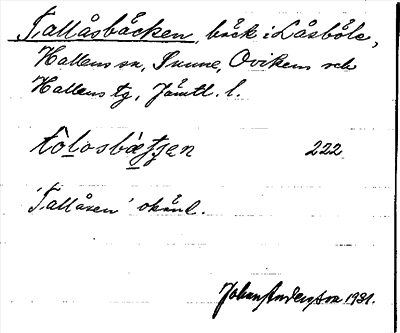 Tallåsbäcken, bäck i Låsböle,
Hallens sn, Sunne, Ovikens och
Hallens tg, Jämtl. l.
tòlosbætʃen 222
'Tallåsen' okänl.
Johan Anderssson 1931.